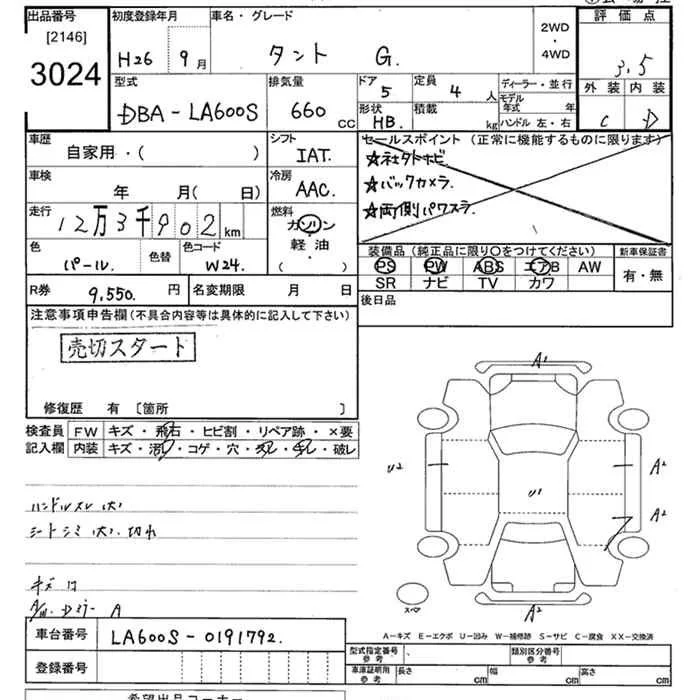 出品番号 初度登録年月 車名・グレード 2WD・4WD 評価点
[2146]
3024 H26 9月 タント G. 3.5
型式 排気量 ドア 定員 ディーラー・並行 外装 内装
DBA-LA600S 660cc 5 4人 モデル年式 年 C D
形状 積載 ハンドル 左・右
HB. kg
車歴 シフト セールスポイント (正常に機能するものに限ります)
自家用・( ) IAT. ☆社外ナビ
車検 冷房 ☆バックカメラ.
年 月( 日) AAC. ☆両側パワスラ.
走行 燃料
12万3千902km ガソリン・軽油・( )
色 色替 色コード 装備品 (純正品に限り〇をつけてください) 新車保証書
パール. W24. PS PW ABS エアB AW 有・無
SR ナビ TV カワ
R券 9,550.円 名変期限 月 日 後日品
注意事項申告欄 (不具合内容等は具体的に記入して下さい)
売切スタート
修復歴 有 〔箇所 〕
検査員 FW キズ・飛石・ヒビ割・リペア跡・×要
記入欄 内装 キズ・汚レ・コゲ・穴・スレ・キレ・破レ
ハンドルスレ(大)
シートシミ(大).切れ
キズ
A
A1
U2
A2
U1
A2
スペア
A2
A-キズ E-エクボ U-凹み W-補修跡 S-サビ C-腐食 XX-交換済
車台番号 LA600S-0191792. 型式指定番号 参考 類別区分番号 参考
登録番号 車庫証明用 参考 長さ cm 幅 cm 高さ cm
希望出品コーナー